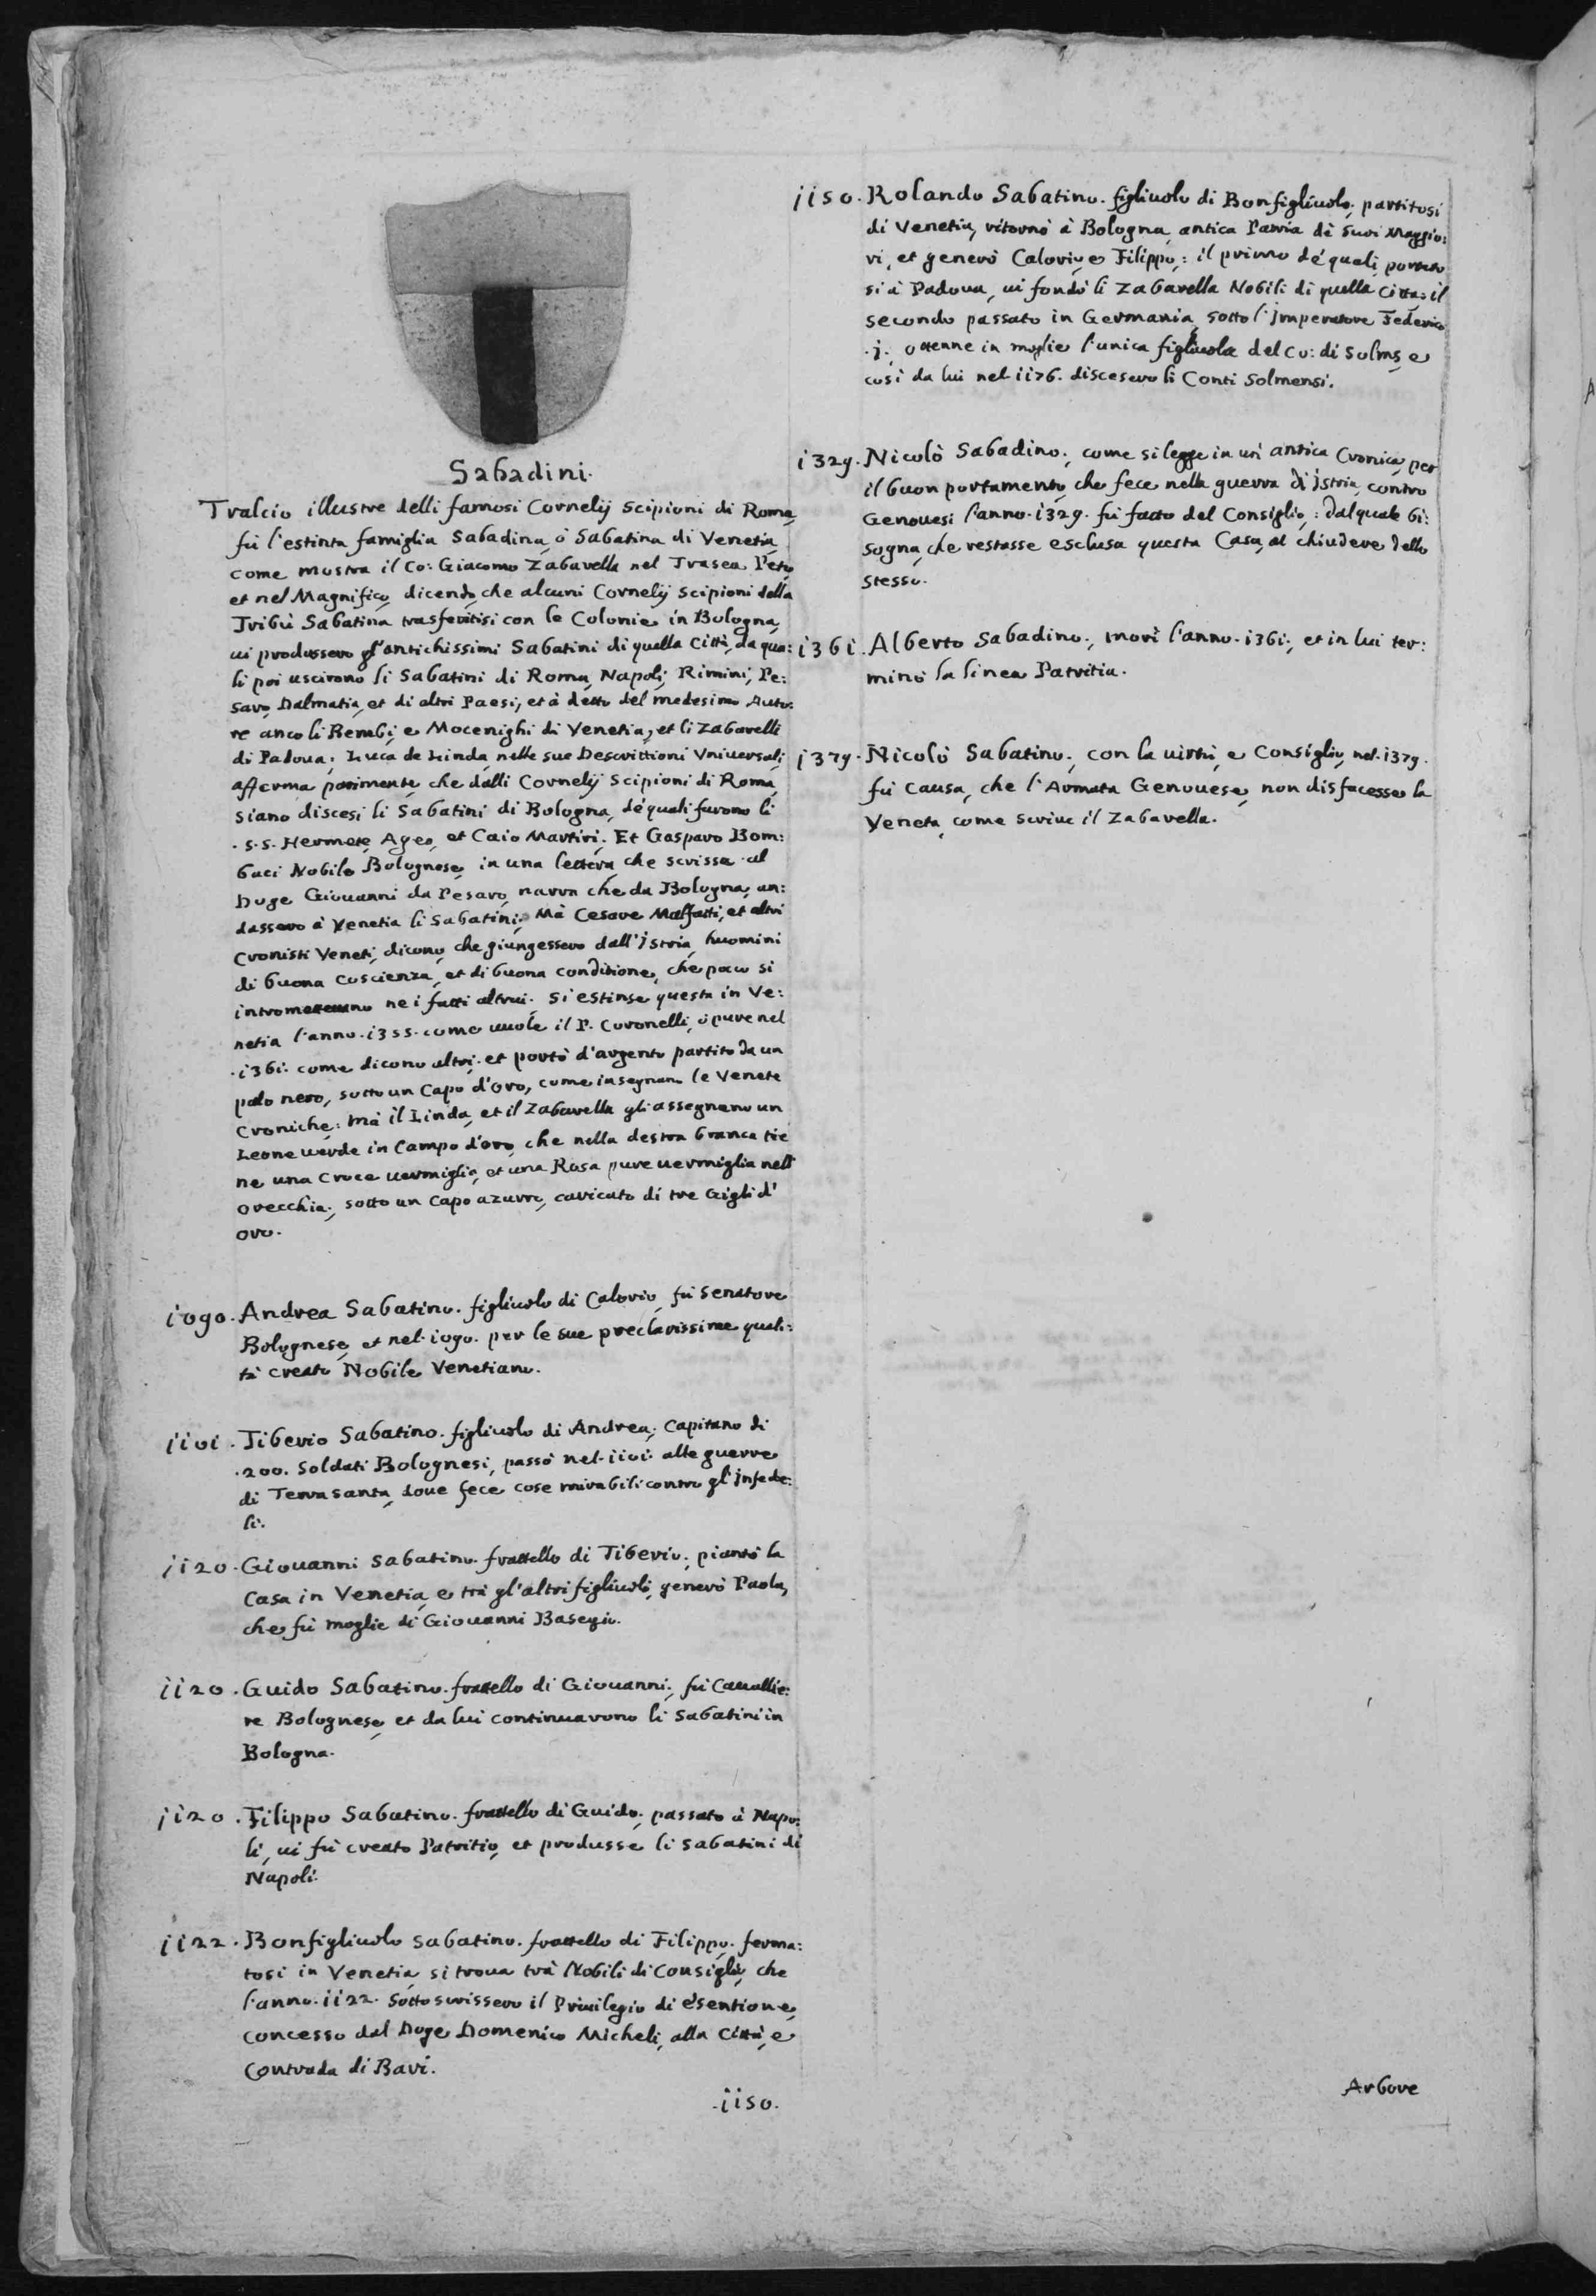 Sabadini.
Tralcio illustre delli famosi Cornelij Scipioni di Roma,
fù l'estinta famiglia Sabadina, ò Sabatina di Venetia,
come mostra il Co: Giacomo Zabarella nel Trasea Peto,
et nel Magnifico, dicendo, che alcuni Cornelij Scipioni della
Tribù Sabatina trasferitisi con le Colonie in Bologna,
ui produssero gl'antichissimi Sabatini di quella Città, da qua:
li poi uscirono li Sabatini di Roma, Napoli, Rimini, Pe:
saro, Dalmatia, et di altri Paesi, et à detto del medesimo Auto:
re anco li Bembi, e Mocenighi di Venetia, et li Zabarelli
di Padoua; Luca de Linda, nelle sue Descrittioni Vniuersali,
afferma parimente, che dalli Cornelij Scipioni di Roma,
siano discesi li Sabatini di Bologna, de' quali furono li
.S.S. Hermete, Ageo, et Caio Martiri. Et Gasparo Bom:
baci Nobile Bolognese, in una lettera, che scrisse al
Doge Giouanni da Pesaro, narra che da Bologna, an:
dassero à Venetia li Sabatini. Mà Cesare Malfatti, et altri
Cronisti Veneti, dicono, che giungessero dall'Istria, huomini
di buona coscienza, et di buona conditione, che poco si
intrometteuano ne i fatti altrui. Si estinse questa in Ve:
netia l'anno .1355. come uuole il P. Coronelli, ò pure nel
.1361. come dicono altri. et portò d'argento partito da un
palo nero, sotto un Capo d'oro, come insegnano le Venete
Croniche: mà il Linda, et il Zabarella gli assegnano un
Leone uerde in Campo d'oro, che nella destra branca tie
ne una Croce uermiglia, et una Rosa pure uermiglia nell'
orecchia, sotto un Capo azurro, caricato di tre Gigli d'
oro.
1090. Andrea Sabatino. figliuolo di Calorio, fù Senatore
Bolognese, et nel .1090. per le sue preclarissime quali:
tà creato Nobile Venetiano.
1101. Tiberio Sabatino. figliuolo di Andrea. Capitano di
.200. Soldati Bolognesi, passò nel .1101. alle guerre
di Terra santa, doue fece cose mirabili contro gl'Infede:
li.
1120. Giouanni Sabatino. frattello di Tiberio. piantò la
Casa in Venetia, e trà gl'altri figliuoli, generò Paola,
che fù moglie di Giouanni Basegio.
1120. Guido Sabatino. frattello di Giouanni. fù Cauallie:
re Bolognese, et da lui continuarono li Sabatini in
Bologna.
1120. Filippo Sabatino. frattello di Guido. passato à Napo:
li, ui fù creato Patritio, et produsse li Sabatini di
Napoli.
1122. Bonfigliuolo Sabatino. frattello di Filippo. ferma:
tosi in Venetia, si troua trà Nobili di Consiglio, che
l'anno .1122. sottoscrissero il Priuilegio di esentione,
concesso dal Doge Domenico Micheli, alla Città, e
Contrada di Bari.
.1150.
1150. Rolando Sabatino. figliuolo di Bonfigliuolo. partitosi
di Venetia, ritornò à Bologna, antica Patria de suoi Maggio:
ri, et generò Calorio, e Filippo: il primo de' quali, portato
si à Padoua, ui fondò li Zabarella Nobili di quella Città: il
secondo passato in Germania, sotto l'Imperatore Federico
.I. ottenne in moglie l'unica figliuola del Co: di Solms, e
così da lui nel .1176. discesero li Conti Solmensi.
1329. Nicolò Sabadino. come si legge in un' antica Cronica, per
il buon portamento, che fece nella guerra di Istria, contro
Genouesi l'anno .1329. fù fatto del Consiglio: dal quale bi:
sogna, che restasse esclusa questa Casa, al chiudere dello
stesso.
1361. Alberto Sabadino. morì l'anno .1361. et in lui ter:
minò la linea Patritia.
1379. Nicolò Sabatino. con la uirtù, e Consiglio, nel .1379.
fù causa, che l'Armata Genouese, non disfacesse la
Veneta, come scriue il Zabarella.
Arbore